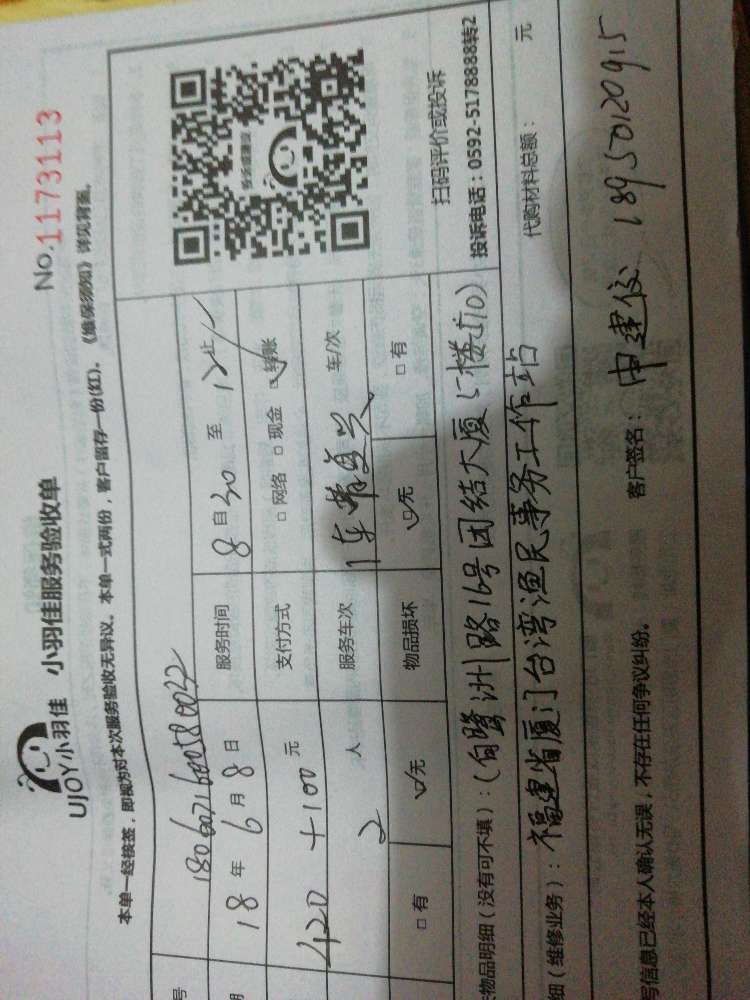 UJOY小羽佳 小羽佳服务验收单
No.1173113
本单一经核签，即视为对本次服务验收无异议。本单一式两份，客户留存一份(红)。《维保须知》详见背面。
号
期 18 年 6 月 8 日 服务时间 8 自 30 至 12 止
420 +100 元 支付方式 □ 网络 □ 现金 ☑ 转账
2 人 服务车次 1车 车/次
□ 有 ☑ 无 物品损坏 ☑ 无 □ 有
扫码评价或投诉
投诉电话：0592-5178888转2
物品明细（没有可不填）：(白鹭洲路16号团结大厦5楼510)
细（维修业务）：福建省厦门台湾渔民事务工作站 代购材料总额： 元
写信息已经本人确认无误，不存在任何争议纠纷。 客户签名： 18950120915